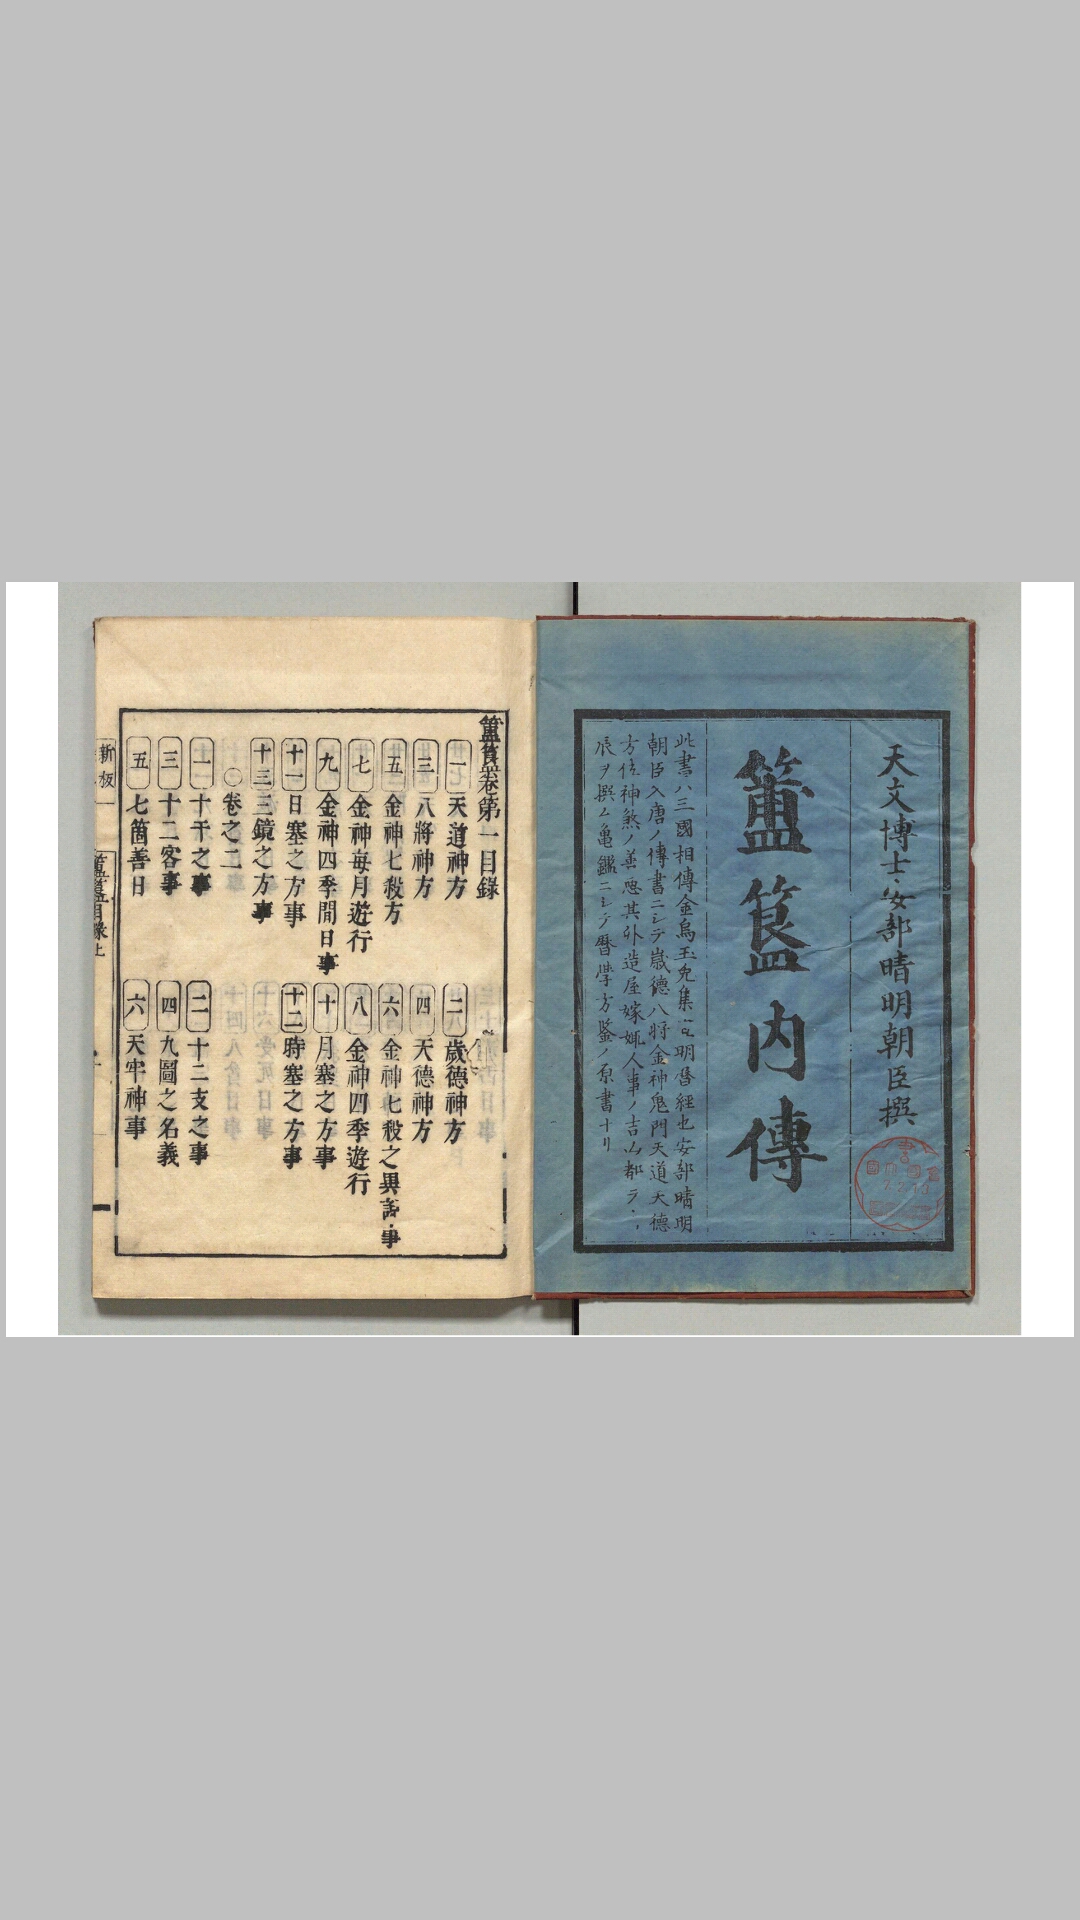 天文博士安部晴明朝臣撰
簠簋内傳
此書ハ三國相傳金烏玉兔集
明曆經也安部晴明
朝臣入唐ノ傳書ニシテ歳德八將金神鬼門天道天德
方位神煞ノ善惡其外造屋嫁娵人事ノ吉凶都テ
辰ヲ撰ム亀鑑ニシテ曆學方鑒ノ原書ナリ
簠簋卷第一目録
一 天道神方
二 歲德神方
三 八將神方
四 天德神方
五 金神七殺方
六 金神七殺之異說事
七 金神每月遊行
八 金神四季遊行
九 金神四季間日事
十 月塞之方事
十一 日塞之方事
十二 時塞之方事
十三 三鏡之方事
〇卷之二
一 十干之事
二 十二支之事
三 十二客事
四 九圖之名義
五 七箇善日
六 天牢神事
新板
簠簋目録上